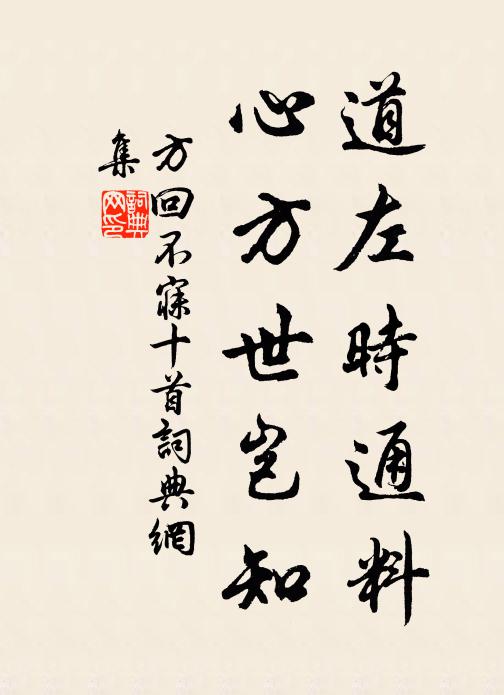 道左時通料
心方世豈知
方回不寐十首詞典網
集
詞典網印